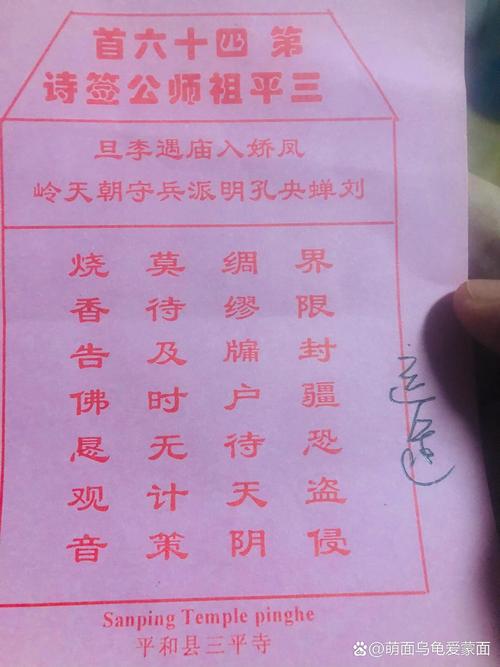 第四十六首
三平祖师公签诗
凤娇入庙遇李旦
刘蝉央孔明派兵守朝天岭
界限封疆恐盗侵
绸缪牖户待天阴
莫待及时无计策
烧香告佛恳观音
Sanping Temple pinghe
平和县三平寺
百家号/萌面乌龟爱蒙面